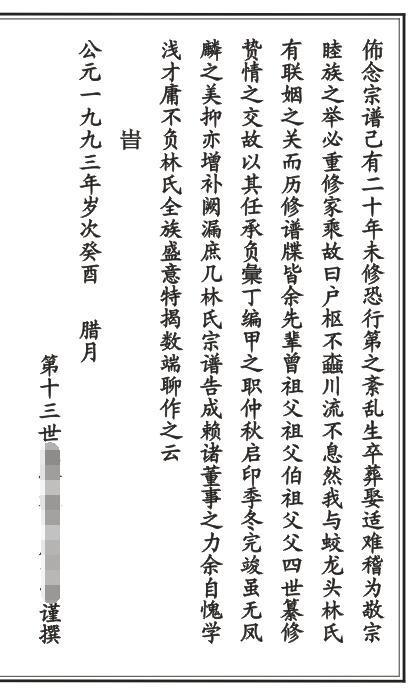 佈念宗谱己有二十年未修恐行第之紊乱生卒葬娶适难稽为敬宗
睦族之举必重修家乘故曰户枢不螙川流不息然我与蛟龙头林氏
有联姻之关而历修谱牒皆余先辈曾祖父祖父伯祖父父四世纂修
贽情之交故以其任承负彙丁编甲之职仲秋启印季冬完竣虽无凤
麟之美抑亦增补阙漏庶几林氏宗谱告成赖诸董事之力余自愧学
浅才庸不负林氏全族盛意特揭数端聊作之云
旹
公元一九九三年岁次癸酉 腊月
第十三世
谨撰